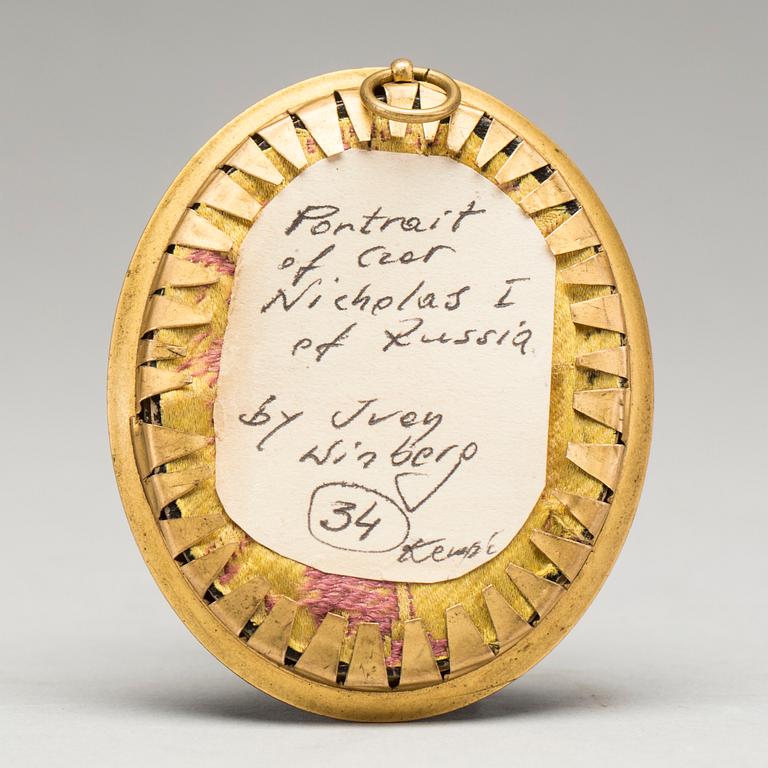 Portrait
of Czar
Nicholas I
of Russia
by Ivan
Winberg
34